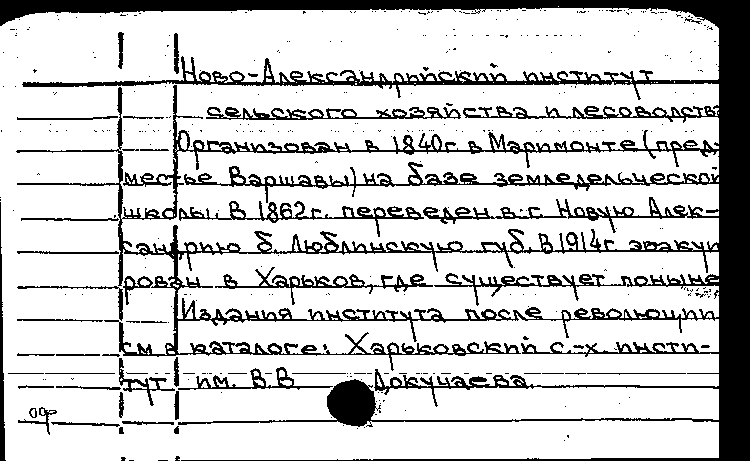 Ново-Александрийский институт
сельского хозяйства и лесоводства
Организован в 1840г. в Маримонте (пред-
местье Варшавы) на базе земледельческой
школы. В 1862г. переведен в г. Новую Алек-
сандрию б. Люблинскую губ. В 1914г эвакуи
рован в Харьков, где существует поныне
Издания института после революции
см в каталоге: Харьковский с.-х. инсти-
тут им. В.В. Докучаева.